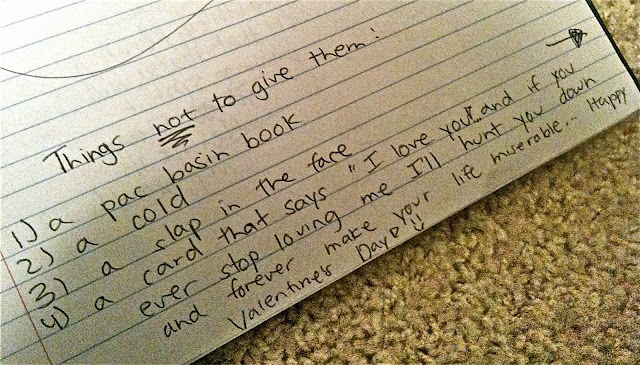 Things not to give them!
1) a pac basin book
2) a cold
3) a slap in the face
4) a card that says "I love you!..and if you
ever stop loving me I'll hunt you down
and forever make your life miserable... Happy
Valentines Day♡ :)